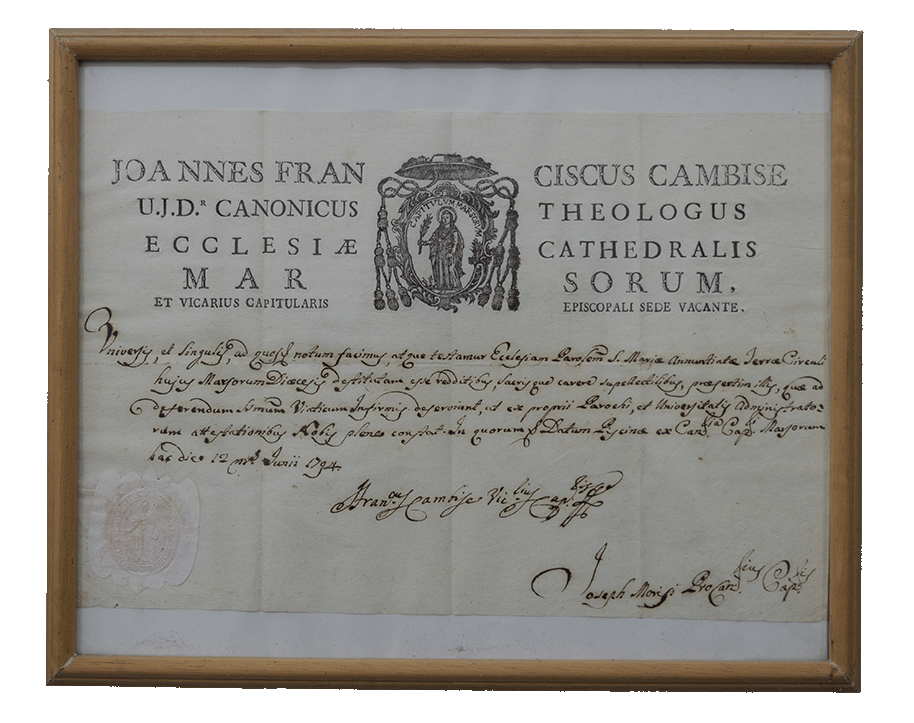 JOANNES FRAN CISCUS CAMBISE
U.J.D.R CANONICUS THEOLOGUS
ECCLESIÆ CATHEDRALIS
MAR SORUM,
ET VICARIUS CAPITULARIS EPISCOPALI SEDE VACANTE.
CAPITULUM MARSORUM
Universis, et Singulis, ad quos notum facimus, atque testamur Ecclesiam Paroḿ S. Mariæ Annuntiatæ Terræ Circuli
hujus Marsorum Diœcesis destitutam esse redditibus, sacrisque carere supellectilibus, præsertim illis, quæ ad
deferendum Smum Viaticum Infirmis deserviant, ut ex proprii Parochi, et Universitatis Administrato-
rum attestationibus Nobis plene constat. In quorum Datum Piscinæ ex Canria Capri Marsorum
hac die 12 mis Junii 1794.
Franus Cambise Vicrius Capris
Joseph Morisi ProCanrius Capris